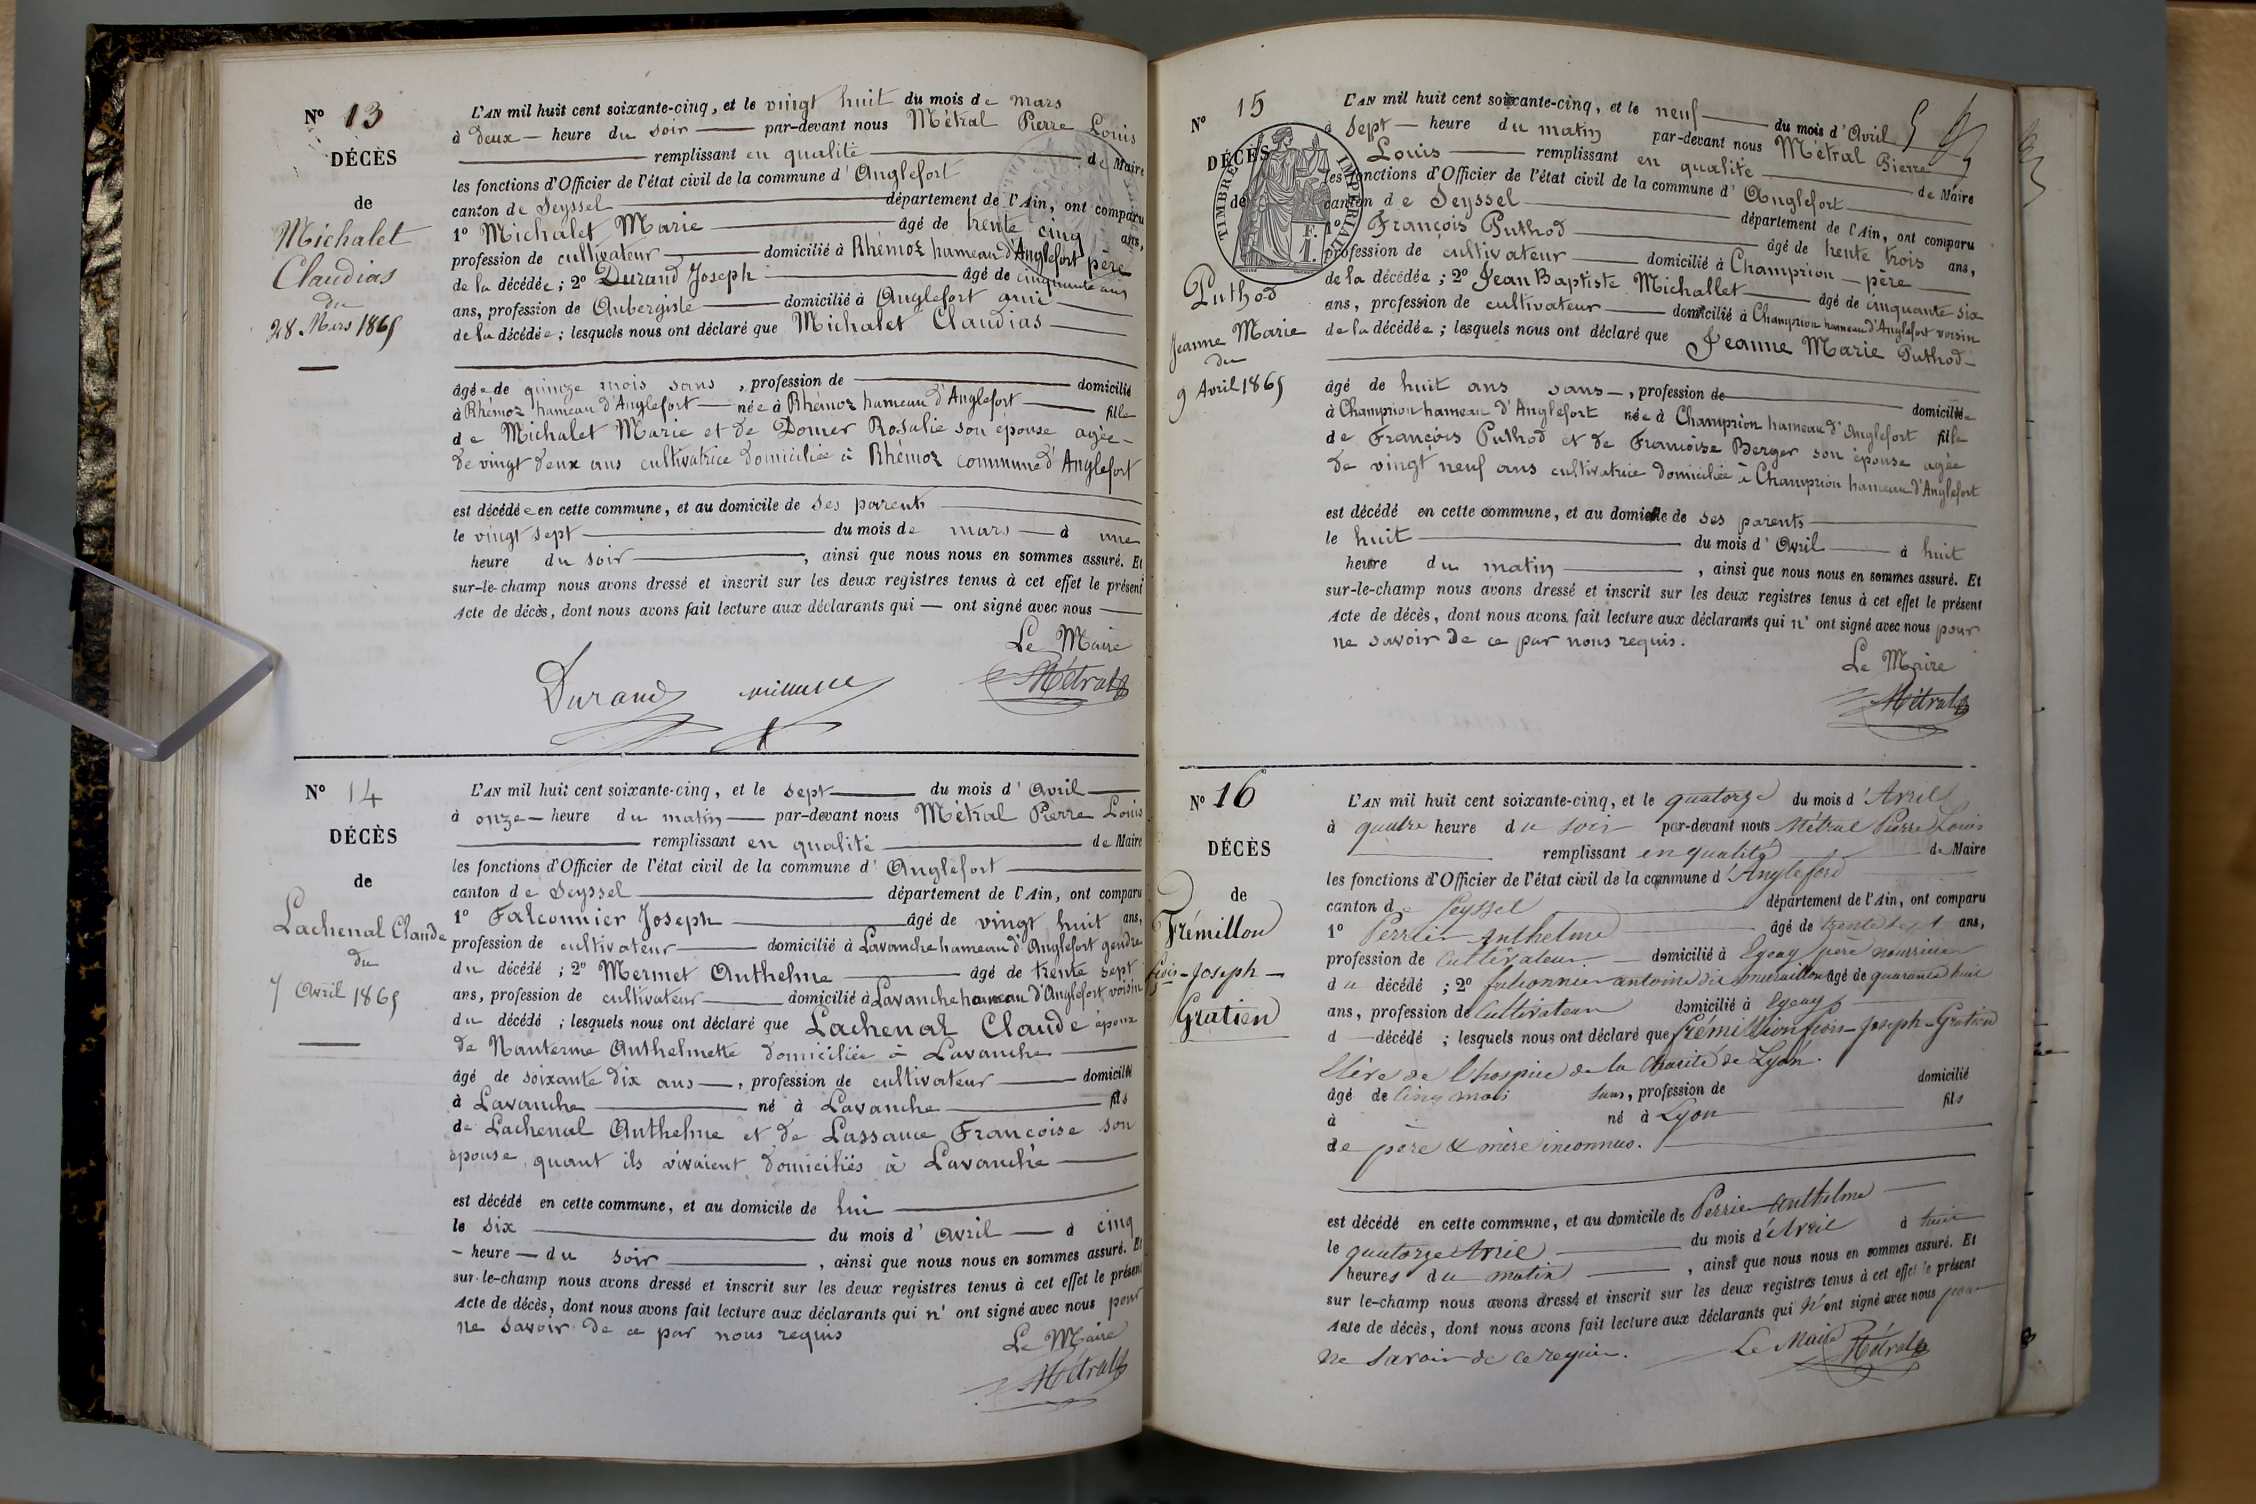 N° 13
DÉCÈS
de
Michalet
Claudias
du
28 Mars 1865
L'AN mil huit cent soixante-cinq, et le vingt huit du mois de mars
à deux heure du soir par-devant nous Métral Pierre Louis
remplissant en qualité de Maire
les fonctions d'Officier de l'état civil de la commune d'Anglefort
canton de Seyssel département de l'Ain, ont comparu
1° Michalet Marie âgé de trente cinq ans,
profession de cultivateur domicilié à Rhémoz hameau d'Anglefort père
de la décédée ; 2° Durand Joseph âgé de cinquante ans
ans, profession de Aubergiste domicilié à Anglefort ami
de la décédée ; lesquels nous ont déclaré que Michalet Claudias
âgée de quinze mois sans , profession de domicilié
à Rhémoz hameau d'Anglefort née à Rhémoz hameau d'Anglefort fille
de Michalet Marie et de Domer Rosalie son épouse agée
de vingt deux ans cultivatrice domiciliée à Rhémoz commune d'Anglefort
est décédée en cette commune, et au domicile de ses parents
le vingt sept du mois de mars à une
heure du soir , ainsi que nous nous en sommes assuré. Et
sur-le-champ nous avons dressé et inscrit sur les deux registres tenus à cet effet le présent
Acte de décès, dont nous avons fait lecture aux déclarants qui ont signé avec nous
Le Maire
Durand Métral
N° 14
DÉCÈS
de
Lachenal Claude
du
7 Avril 1865
L'AN mil huit cent soixante-cinq, et le sept du mois d'Avril
à onze heure du matin par-devant nous Métral Pierre Louis
remplissant en qualité de Maire
les fonctions d'Officier de l'état civil de la commune d'Anglefort
canton de Seyssel département de l'Ain, ont comparu
1° Falconnier Joseph âgé de vingt huit ans,
profession de cultivateur domicilié à Lavanche hameau d'Anglefort gendre
du décédé ; 2° Mermet Anthelme âgé de trente sept
ans, profession de cultivateur domicilié à Lavanche hameau d'Anglefort voisin
du décédé ; lesquels nous ont déclaré que Lachenal Claude époux
de Nanterme Anthelmette domiciliée à Lavanche
âgé de soixante dix ans , profession de cultivateur domicilié
à Lavanche né à Lavanche fils
de Lachenal Anthelme et de Lassauce Françoise son
épouse quant ils vivaient domiciliés à Lavanche
est décédé en cette commune, et au domicile de lui
le six du mois d'Avril à cinq
heure du soir , ainsi que nous nous en sommes assuré. Et
sur-le-champ nous avons dressé et inscrit sur les deux registres tenus à cet effet le présent
Acte de décès, dont nous avons fait lecture aux déclarants qui n'ont signé avec nous pour
ne savoir de ce par nous requis
Le Maire
Métral
N° 15
DÉCÈS
de
TIMBRE IMPÉRIAL
F. 1.
Puthod
Jeanne Marie
du
9 Avril 1865
L'AN mil huit cent soixante-cinq, et le neuf du mois d'Avril
à sept heure du matin par-devant nous Métral Pierre
Louis remplissant en qualité de Maire
les fonctions d'Officier de l'état civil de la commune d'Anglefort
canton de Seyssel département de l'Ain, ont comparu
1° François Puthod âgé de trente trois ans,
profession de cultivateur domicilié à Champrion père
de la décédée ; 2° Jean Baptiste Michallet âgé de cinquante six
ans, profession de cultivateur domicilié à Champrion hameau d'Anglefort voisin
de la décédée ; lesquels nous ont déclaré que Jeanne Marie Puthod
âgé de huit ans sans , profession de domiciliée
à Champrion hameau d'Anglefort née à Champrion hameau d'Anglefort fille
de François Puthod et de Françoise Berger son épouse agée
de vingt neuf ans cultivatrice domiciliée à Champrion hameau d'Anglefort
est décédé en cette commune, et au domicile de ses parents
le huit du mois d'Avril à huit
heure du matin , ainsi que nous nous en sommes assuré. Et
sur-le-champ nous avons dressé et inscrit sur les deux registres tenus à cet effet le présent
Acte de décès, dont nous avons fait lecture aux déclarants qui n'ont signé avec nous pour
ne savoir de ce par nous requis.
Le Maire
Métral
N° 16
DÉCÈS
de
Frémillon
fçois-Joseph-
Gratien
L'AN mil huit cent soixante-cinq, et le quatorze du mois d'Avril
à quatre heure du soir par-devant nous Métral Pierre Louis
remplissant en qualité de Maire
les fonctions d'Officier de l'état civil de la commune d'Anglefort
canton de Seyssel département de l'Ain, ont comparu
1° Perrier Anthelme âgé de trente sept ans,
profession de Cultivateur domicilié à père nourricier
du décédé ; 2° falconnier antoine dit âgé de quarante huit
ans, profession de Cultivateur domicilié à
d décédé ; lesquels nous ont déclaré que frémillon fçois-Joseph-Gratien
Elève de l'hospice de la Charité de Lyon.
âgé de Cinq mois sans, profession de domicilié
à né à Lyon fils
de père & mère inconnus.
est décédé en cette commune, et au domicile de Perrier anthelme
le quatorze Avril du mois d'Avril à huit
heures du matin , ainsi que nous nous en sommes assuré. Et
sur le-champ nous avons dressé et inscrit sur les deux registres tenus à cet effet le présent
Acte de décès, dont nous avons fait lecture aux déclarants qui n'ont signé avec nous pour
ne savoir de ce requis.
Le Maire Métral